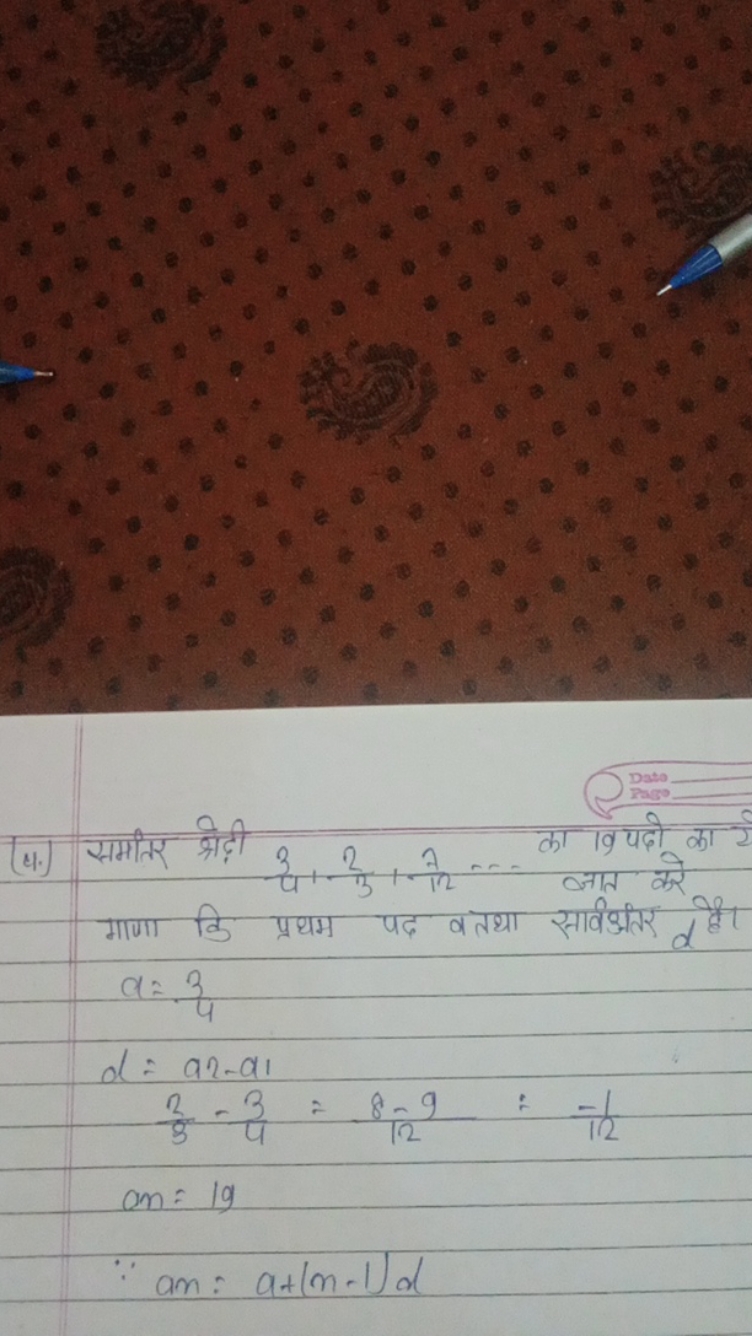 Date
Page
(4.) समांतर श्रेढ़ी 3/4, 2/3, 7/12 --- का 19 पदो का
ज्ञात करे
माणा कि प्रथम पद a तथा सार्वअंतर d है।
a = 3/4
d = a2-a1
2/3 - 3/4 = 8-9/12 = -1/12
an = 19
∵ an = a+(n-1)d